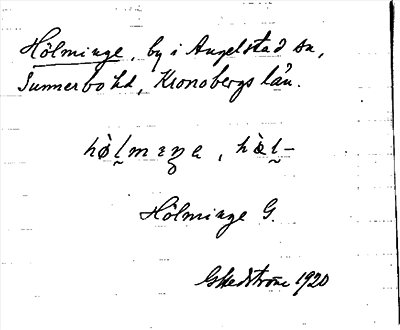 Hölminge, by i Angelstad sn,
Sunnerbo hd, Kronobergs län.
hö̀lmeŋe, hö̀l-
Hölminge G.
GHedström 1920